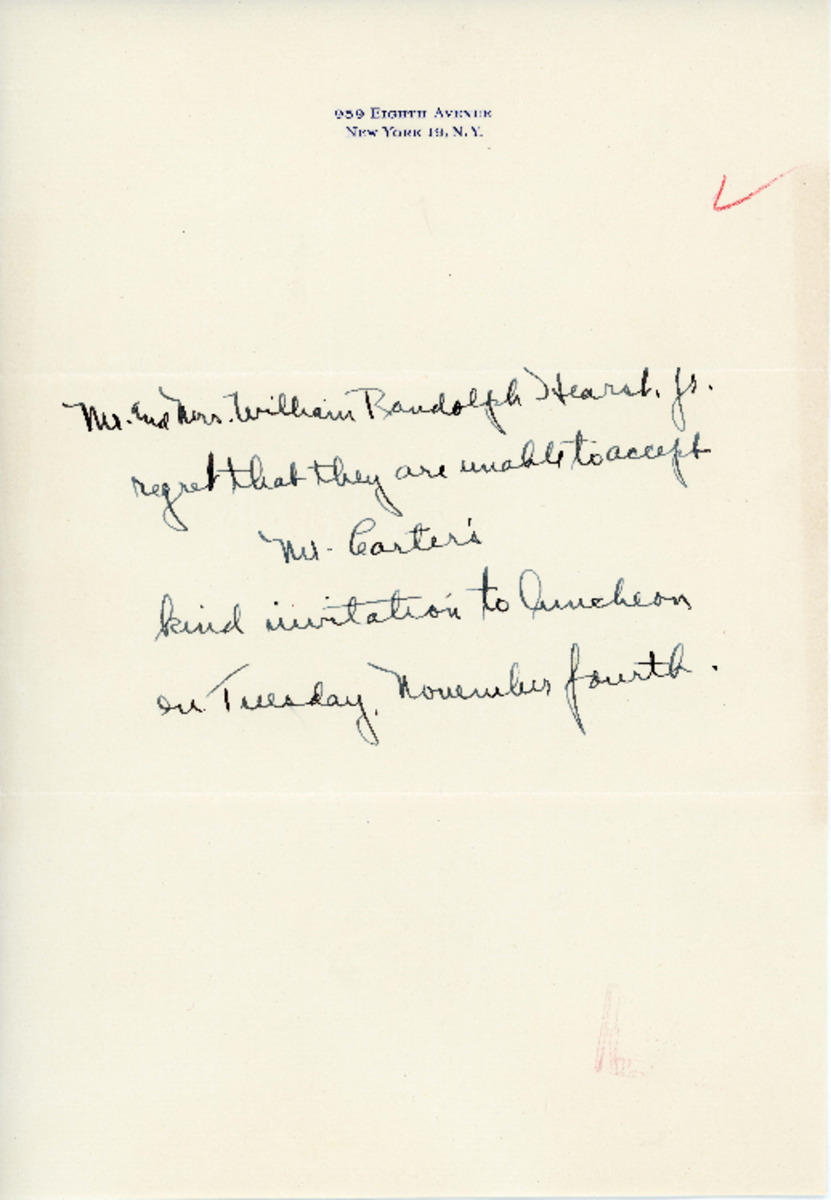 959 Eighth Avenue
New York 19, N.Y.
Mr. and Mrs. William Randolph Hearst, Jr.
regret that they are unable to accept
Mr. Carter's
kind invitation to luncheon
on Tuesday, November fourth.